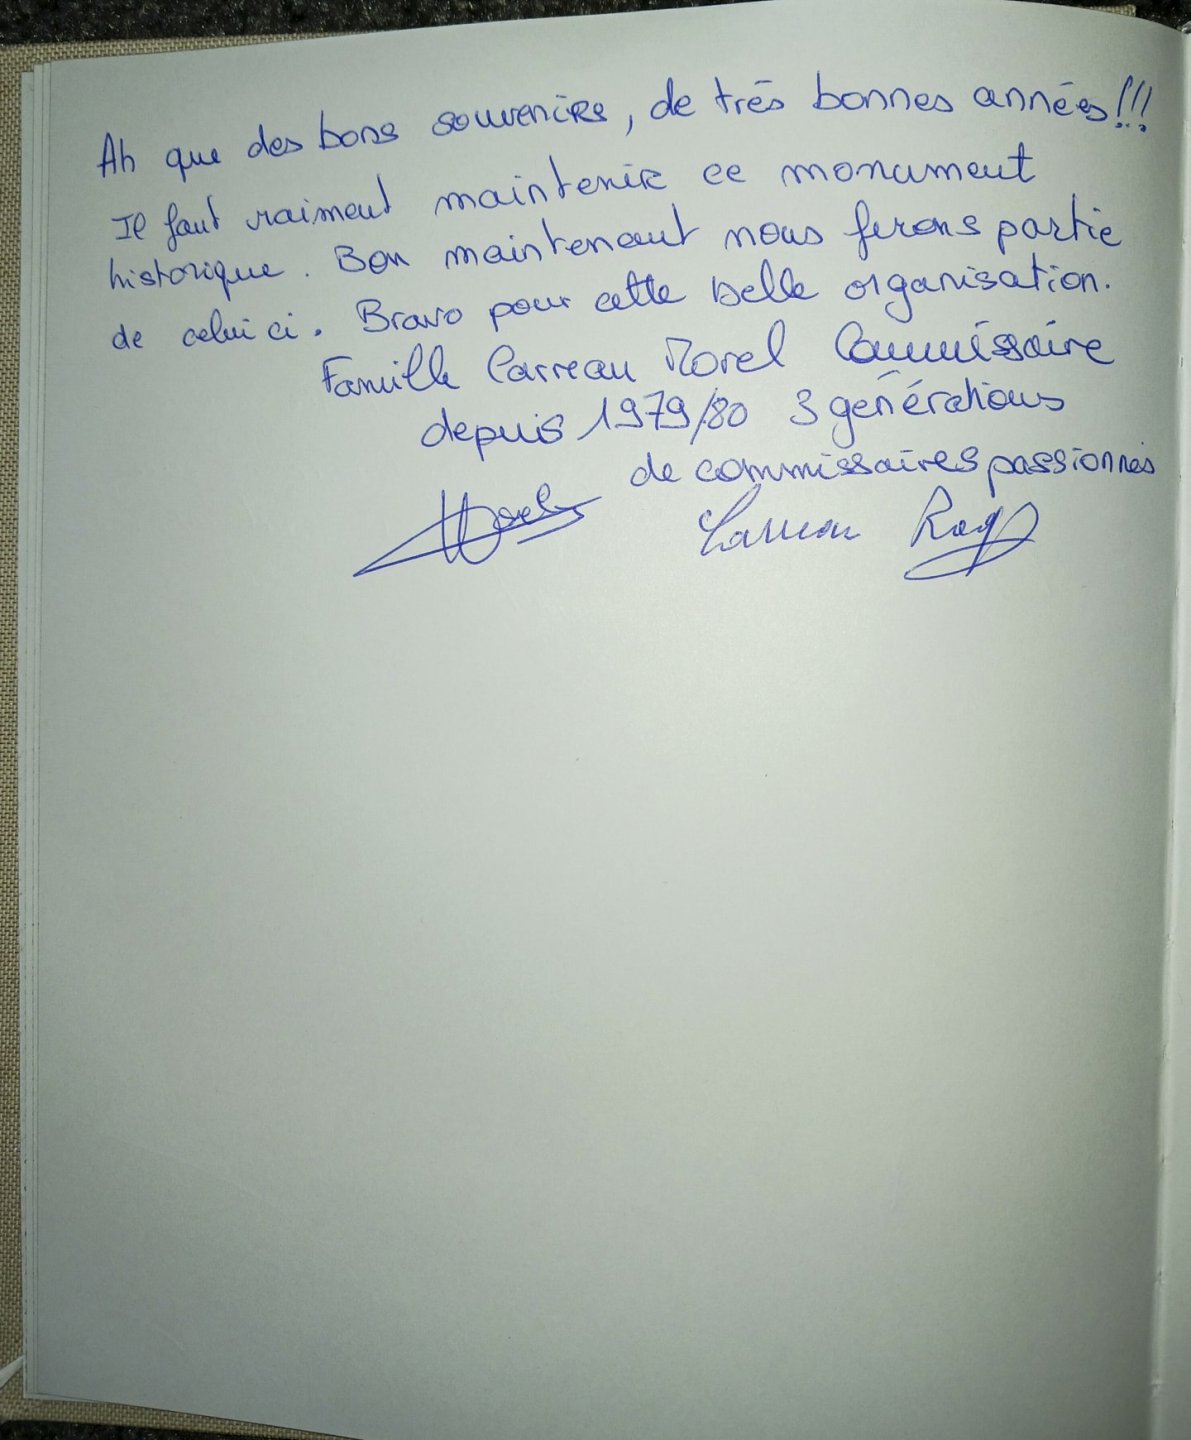 Ah que des bons souvenirs, de très bonnes années!!!
Il faut vraiment maintenir ce monument
historique. Bon maintenant nous ferons partie
de celui ci. Bravo pour cette belle organisation.
Famille Carreau Morel Commissaire
depuis 1979/80 3 générations
de commissaires passionnés
Carreau